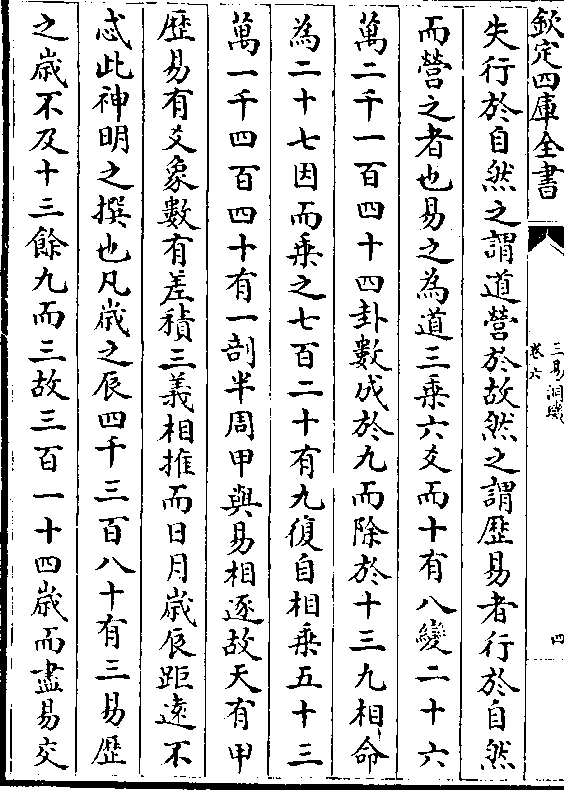 欽定四庫全書
三易洞璣
卷六
四
失行於自然之謂道營於故然之謂厯易者行於自然
而營之者也易之為道三乗六爻而十有八變二十六
萬二千一百四十四卦數成於九而除於十三九相命
為二十七因而乗之七百二十有九復自相乗五十三
萬一千四百四十有一剖半周甲與易相逐故天有甲
歴易有爻象數有差積三義相推而日月歳辰距逺不
忒此神明之撰也凡歳之辰四千三百八十有三易歴
之歳不及十三餘九而三故三百一十四歳而盡易交